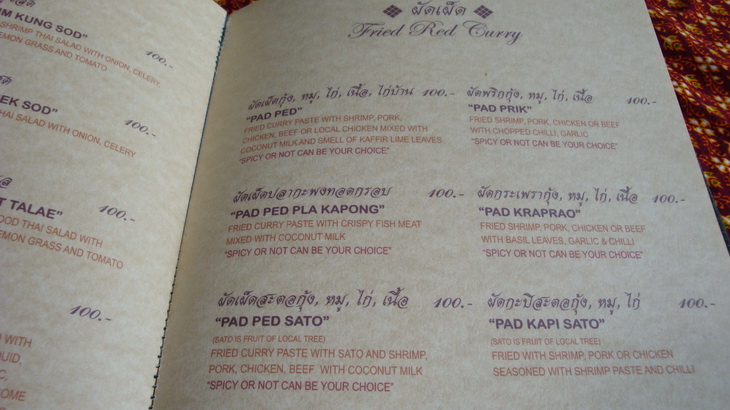 M KUNG SOD"
SHRIMP THAI SALAD WITH ONION, CELERY,
EMON GRASS AND TOMATO
100.-
EK SOD"
HAI SALAD WITH ONION, CELERY
100.-
T TALAE"
OOD THAI SALAD WITH
EMON GRASS AND TOMATO
100.-
100.-
WITH
UID,
C,
OME
ผัดเผ็ด
Fried Red Curry
ผัดเผ็ดกุ้ง, หมู, ไก่, เนื้อ, ไก่บ้าน 100.-
"PAD PED"
FRIED CURRY PASTE WITH SHRIMP, PORK,
CHICKEN, BEEF OR LOCAL CHICKEN MIXED WITH
COCONUT MILK AND SMELL OF KAFFIR LIME LEAVES
"SPICY OR NOT CAN BE YOUR CHOICE"
ผัดพริกกุ้ง, หมู, ไก่, เนื้อ 100.-
"PAD PRIK"
FRIED SHRIMP, PORK, CHICKEN OR BEEF
WITH CHOPPED CHILLI, GARLIC
"SPICY OR NOT CAN BE YOUR CHOICE"
ผัดเผ็ดปลากะพงทอดกรอบ 100.-
"PAD PED PLA KAPONG"
FRIED CURRY PASTE WITH CRISPY FISH MEAT
MIXED WITH COCONUT MILK
"SPICY OR NOT CAN BE YOUR CHOICE"
ผัดกระเพรากุ้ง, หมู, ไก่, เนื้อ 100.-
"PAD KRAPRAO"
FRIED SHRIMP, PORK, CHICKEN OR BEEF
WITH BASIL LEAVES, GARLIC & CHILLI
"SPICY OR NOT CAN BE YOUR CHOICE"
ผัดเผ็ดสะตอกุ้ง, หมู, ไก่, เนื้อ 100.-
"PAD PED SATO"
(SATO IS FRUIT OF LOCAL TREE)
FRIED CURRY PASTE WITH SATO AND SHRIMP,
PORK, CHICKEN, BEEF WITH COCONUT MILK
"SPICY OR NOT CAN BE YOUR CHOICE"
ผัดกะปิสะตอกุ้ง, หมู, ไก่ 100.-
"PAD KAPI SATO"
(SATO IS FRUIT OF LOCAL TREE)
FRIED WITH SHRIMP, PORK OR CHICKEN
SEASONED WITH SHRIMP PASTE AND CHILLI